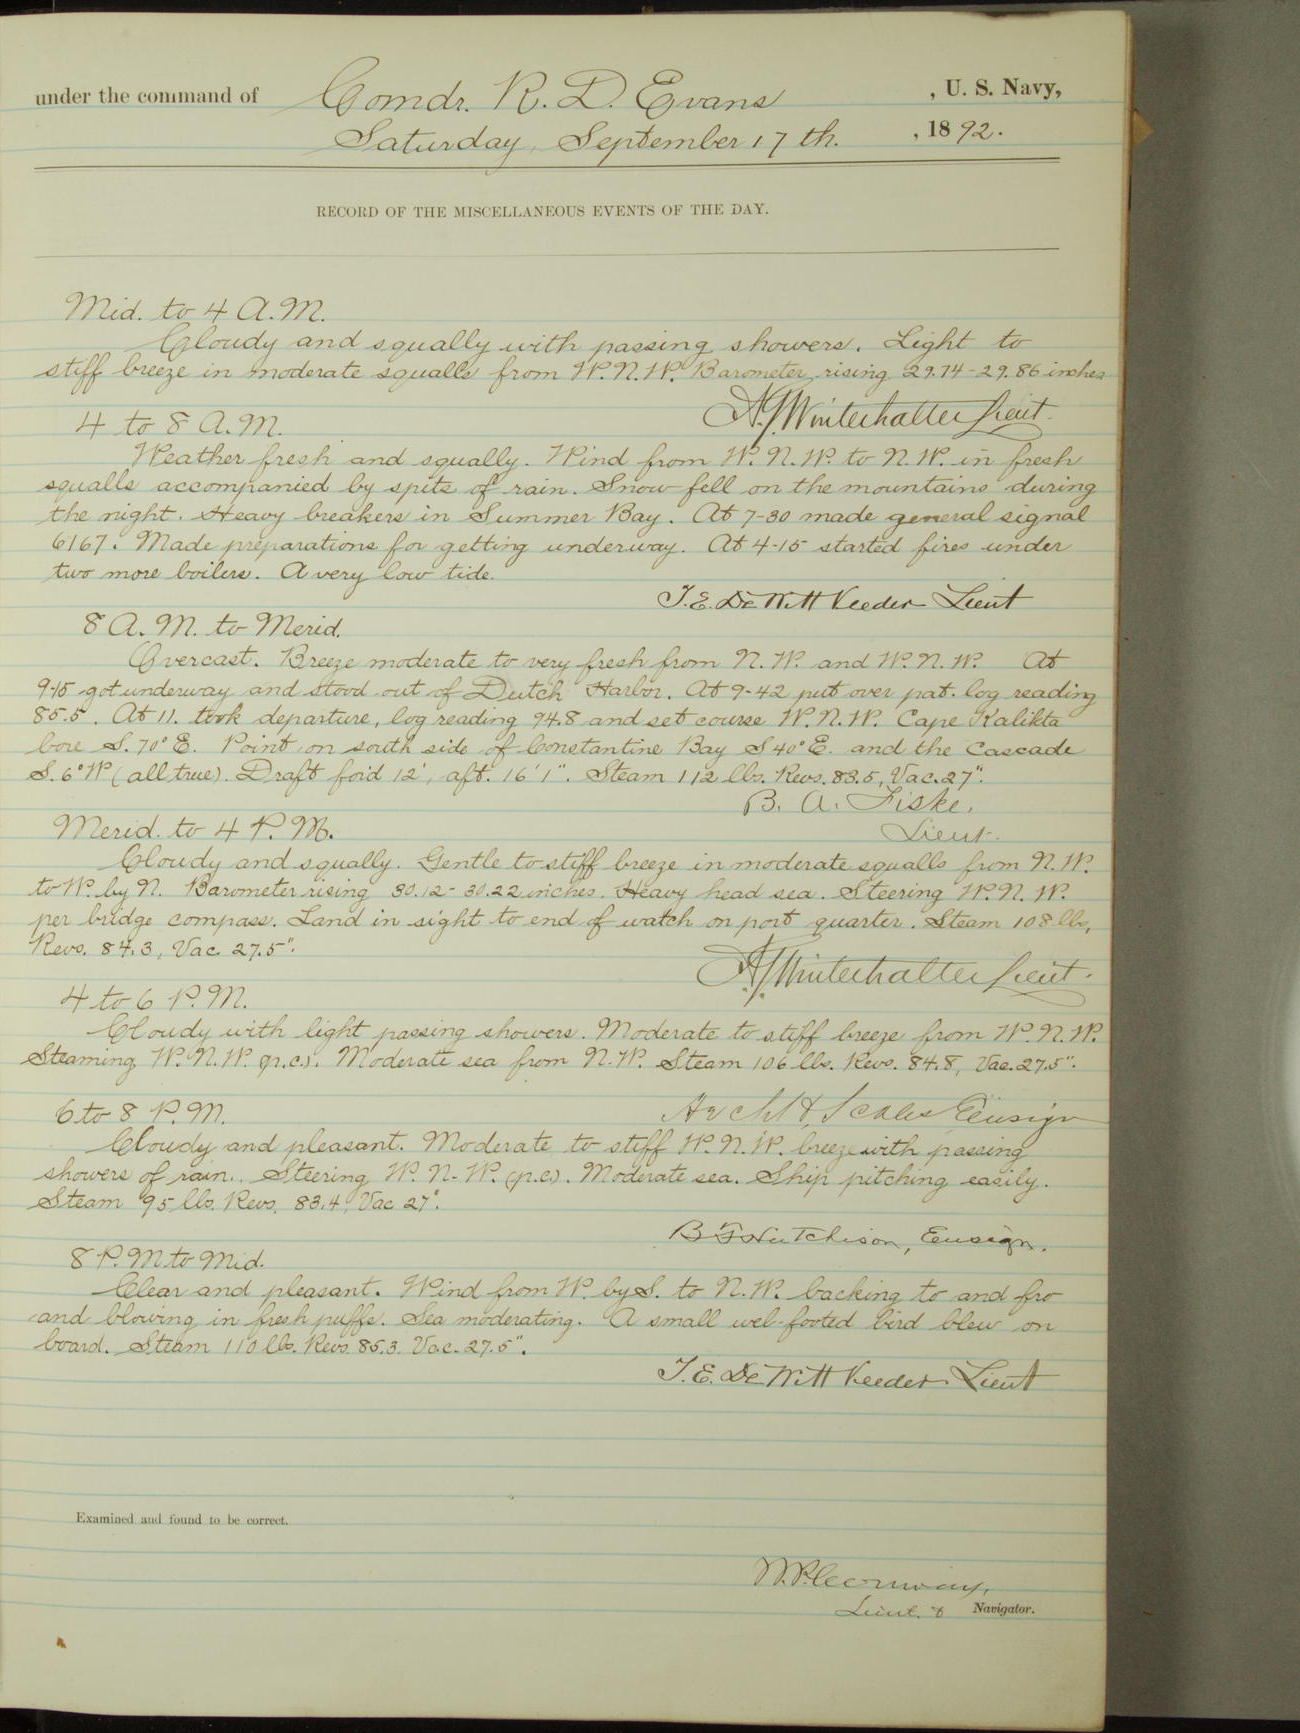 under the command of Comdr. R. D. Evans , U. S. Navy,
Saturday, September 17th. , 1892.
RECORD OF THE MISCELLANEOUS EVENTS OF THE DAY.
Mid. to 4 A.M.
Cloudy and squally with passing showers. Light to
stiff breeze in moderate squalls from W.N.W. Barometer rising 29.74-29.86 inches
A.G. Winterhalter Lieut.
4 to 8 A.M.
Weather fresh and squally. Wind from W.N.W. to N.W. in fresh
squalls accompanied by spits of rain. Snow fell on the mountains during
the night. Heavy breakers in Summer Bay. At 7-30 made general signal
6167. Made preparations for getting underway. At 4-15 started fires under
two more boilers. A very low tide.
T.E. DeWitt Veeder Lieut
8 A.M. to Merid.
Overcast. Breeze moderate to very fresh from N.W. and W.N.W. At
9-15 got underway and stood out of Dutch Harbor. At 9-42 put over pat. log reading
85.5. At 11. took departure, log reading 94.8 and set course W.N.W. Cape Kalikta
bore S. 70° E. Point on south side of Constantine Bay S 40° E. and the Cascade
S. 6° W (all true). Draft for'd 12', aft. 16' 1". Steam 112 lbs. Revs. 83.5, Vac. 27".
B. A. Fiske.
Lieut.
Merid. to 4 P.M.
Cloudy and squally. Gentle to stiff breeze in moderate squalls from N.W.
to W. by N. Barometer rising 30.12-30.22 inches. Heavy head sea. Steering W.N.W.
per bridge compass. Land in sight to end of watch on port quarter. Steam 108 lbs,
Revs. 84.3, Vac. 27.5".
A.G. Winterhalter Lieut.
4 to 6 P.M.
Cloudy with light passing showers. Moderate to stiff breeze from W.N.W.
Steaming W.N.W. (p.c.). Moderate sea from N.W. Steam 106 lbs. Revs. 84.8, Vac. 27.5".
6 to 8 P.M. Archd H. Scales Ensign
Cloudy and pleasant. Moderate to stiff W.N.W. breeze with passing
showers of rain. Steering W.N.W. (p.c.). Moderate sea. Ship pitching easily.
Steam 95 lbs. Revs. 83.4, Vac 27".
B F Hutchison, Ensign.
8 P.M to Mid.
Clear and pleasant. Wind from W. by S. to N.W. backing to and fro
and blowing in fresh puffs. Sea moderating. A small wel-footed bird blew on
board. Steam 110 lbs. Revs. 85.3. Vac. 27.5".
T.E. DeWitt Veeder Lieut
Examined and found to be correct.
W.P. Conway,
Lieut. & Navigator.